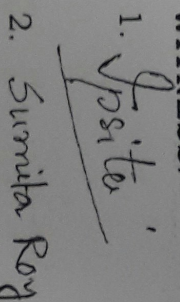 1. Ipsita
2. Sumita Roy